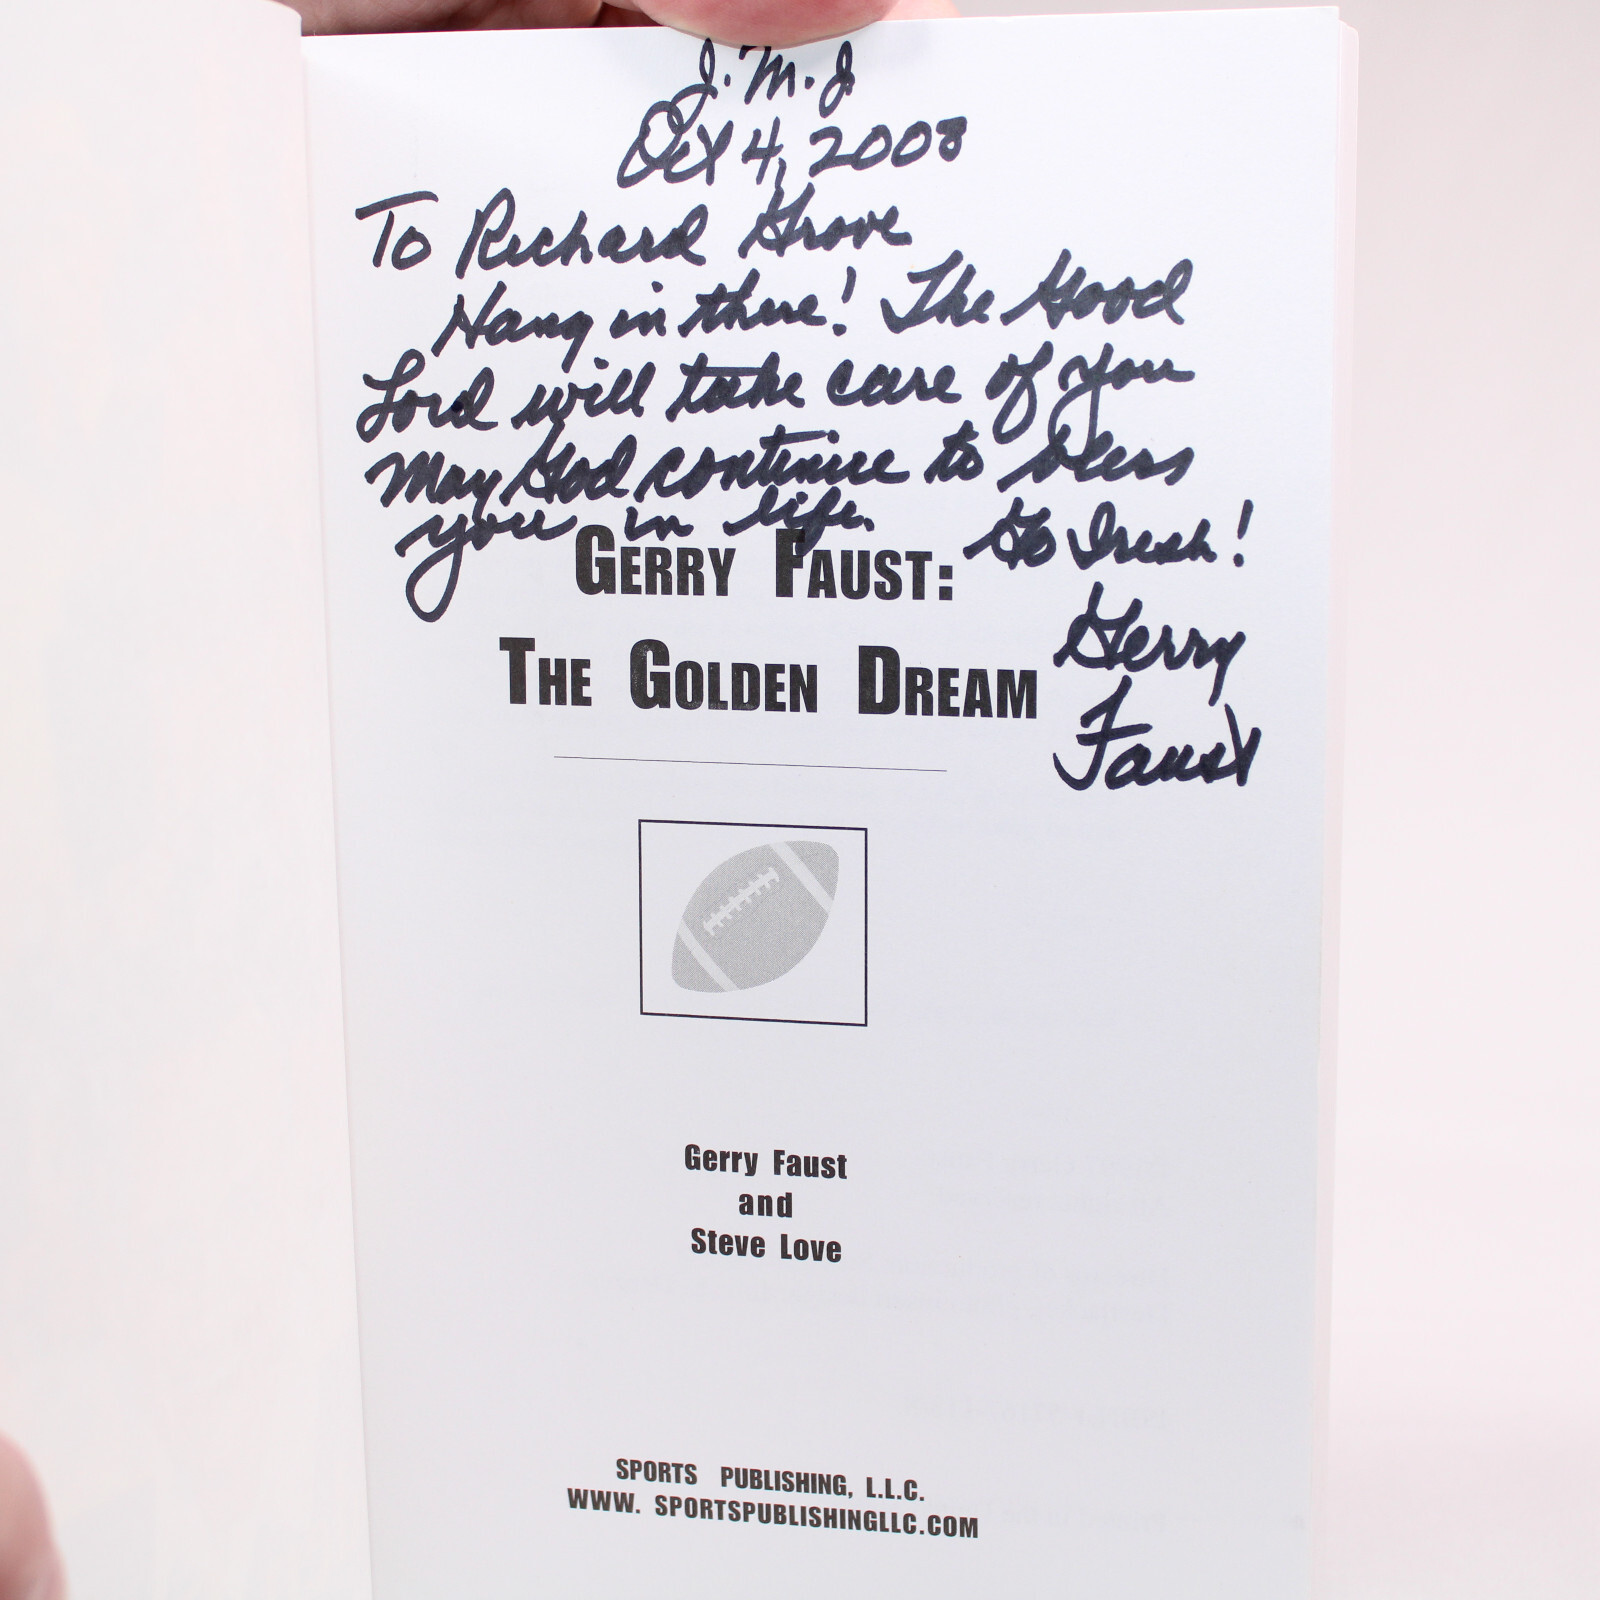 J.M.J.
Oct 4, 2008
To Richard Grove
Hang in there! The Good
Lord will take care of you
May God continue to bless
you in life. Go Irish!
Gerry
Faust
GERRY FAUST:
THE GOLDEN DREAM
Gerry Faust
and
Steve Love
SPORTS PUBLISHING, L.L.C.
WWW. SPORTSPUBLISHINGLLC.COM